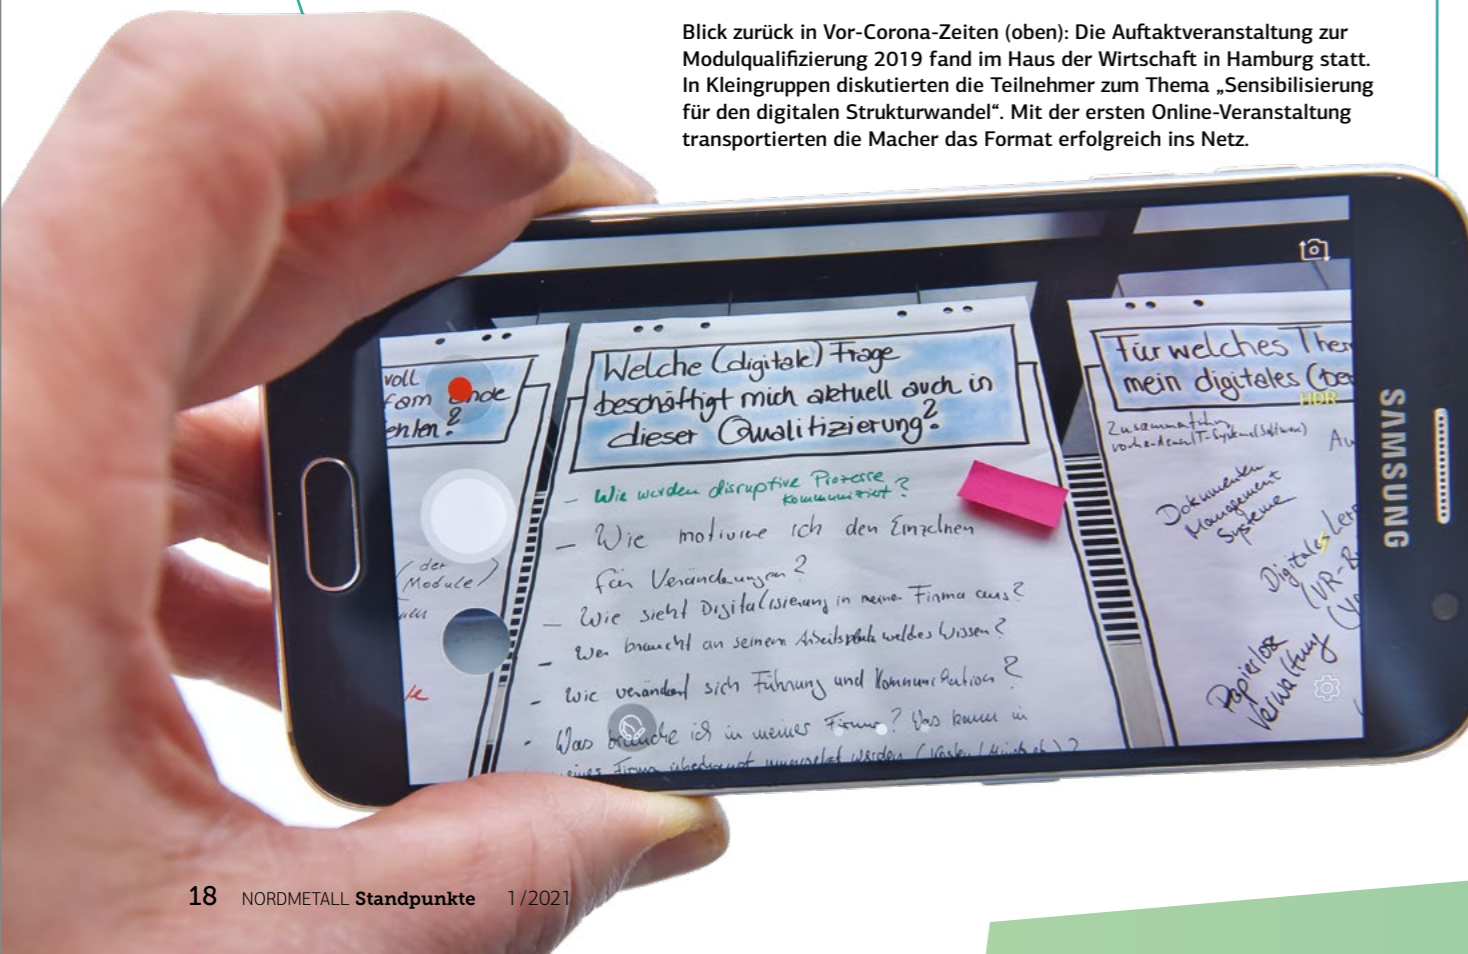 Blick zurück in Vor-Corona-Zeiten (oben): Die Auftaktveranstaltung zur
Modulqualifizierung 2019 fand im Haus der Wirtschaft in Hamburg statt.
In Kleingruppen diskutierten die Teilnehmer zum Thema „Sensibilisierung
für den digitalen Strukturwandel“. Mit der ersten Online-Veranstaltung
transportierten die Macher das Format erfolgreich ins Netz.
voll
enhlen?
(der
Module)
Welche (digitale) Frage
beschäftigt mich aktuell auch in
dieser Qualifizierung?
– Wie werden disruptive Prozesse
kommuniziert?
– Wie motiviere ich den Einzelnen
für Veränderungen?
– Wie sieht Digitalisierung in meiner Firma aus?
– Wer braucht an seinem Arbeitsplatz welches Wissen?
- Wie verändert sich Führung und Kommunikation?
- Was brauche ich in meiner Firma? Was kann in
meiner Firma überhaupt umgesetzt werden
Für welches
mein digitales
HDR
Dokumenten
Management
Systeme
Digitales
Papierlose
Verwaltung
SAMSUNG
18 NORDMETALL Standpunkte 1/2021